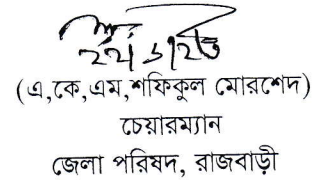 (এ,কে,এম,শফিকুল মোরশেদ)
চেয়ারম্যান
জেলা পরিষদ, রাজবাড়ী